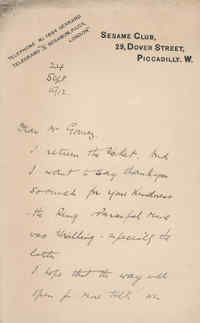 TELEPHONE No 1994 GERRARD
TELEGRAMS
LONDON
SESAME CLUB,
29, DOVER STREET,
PICCADILLY. W.
24
Sept
1912
Dear Mr
I return the ticket. And
I want to say thank you
so much for your kindness
- the Ring
was thrilling - especially the
latter
I hope that the way will
open for more talks